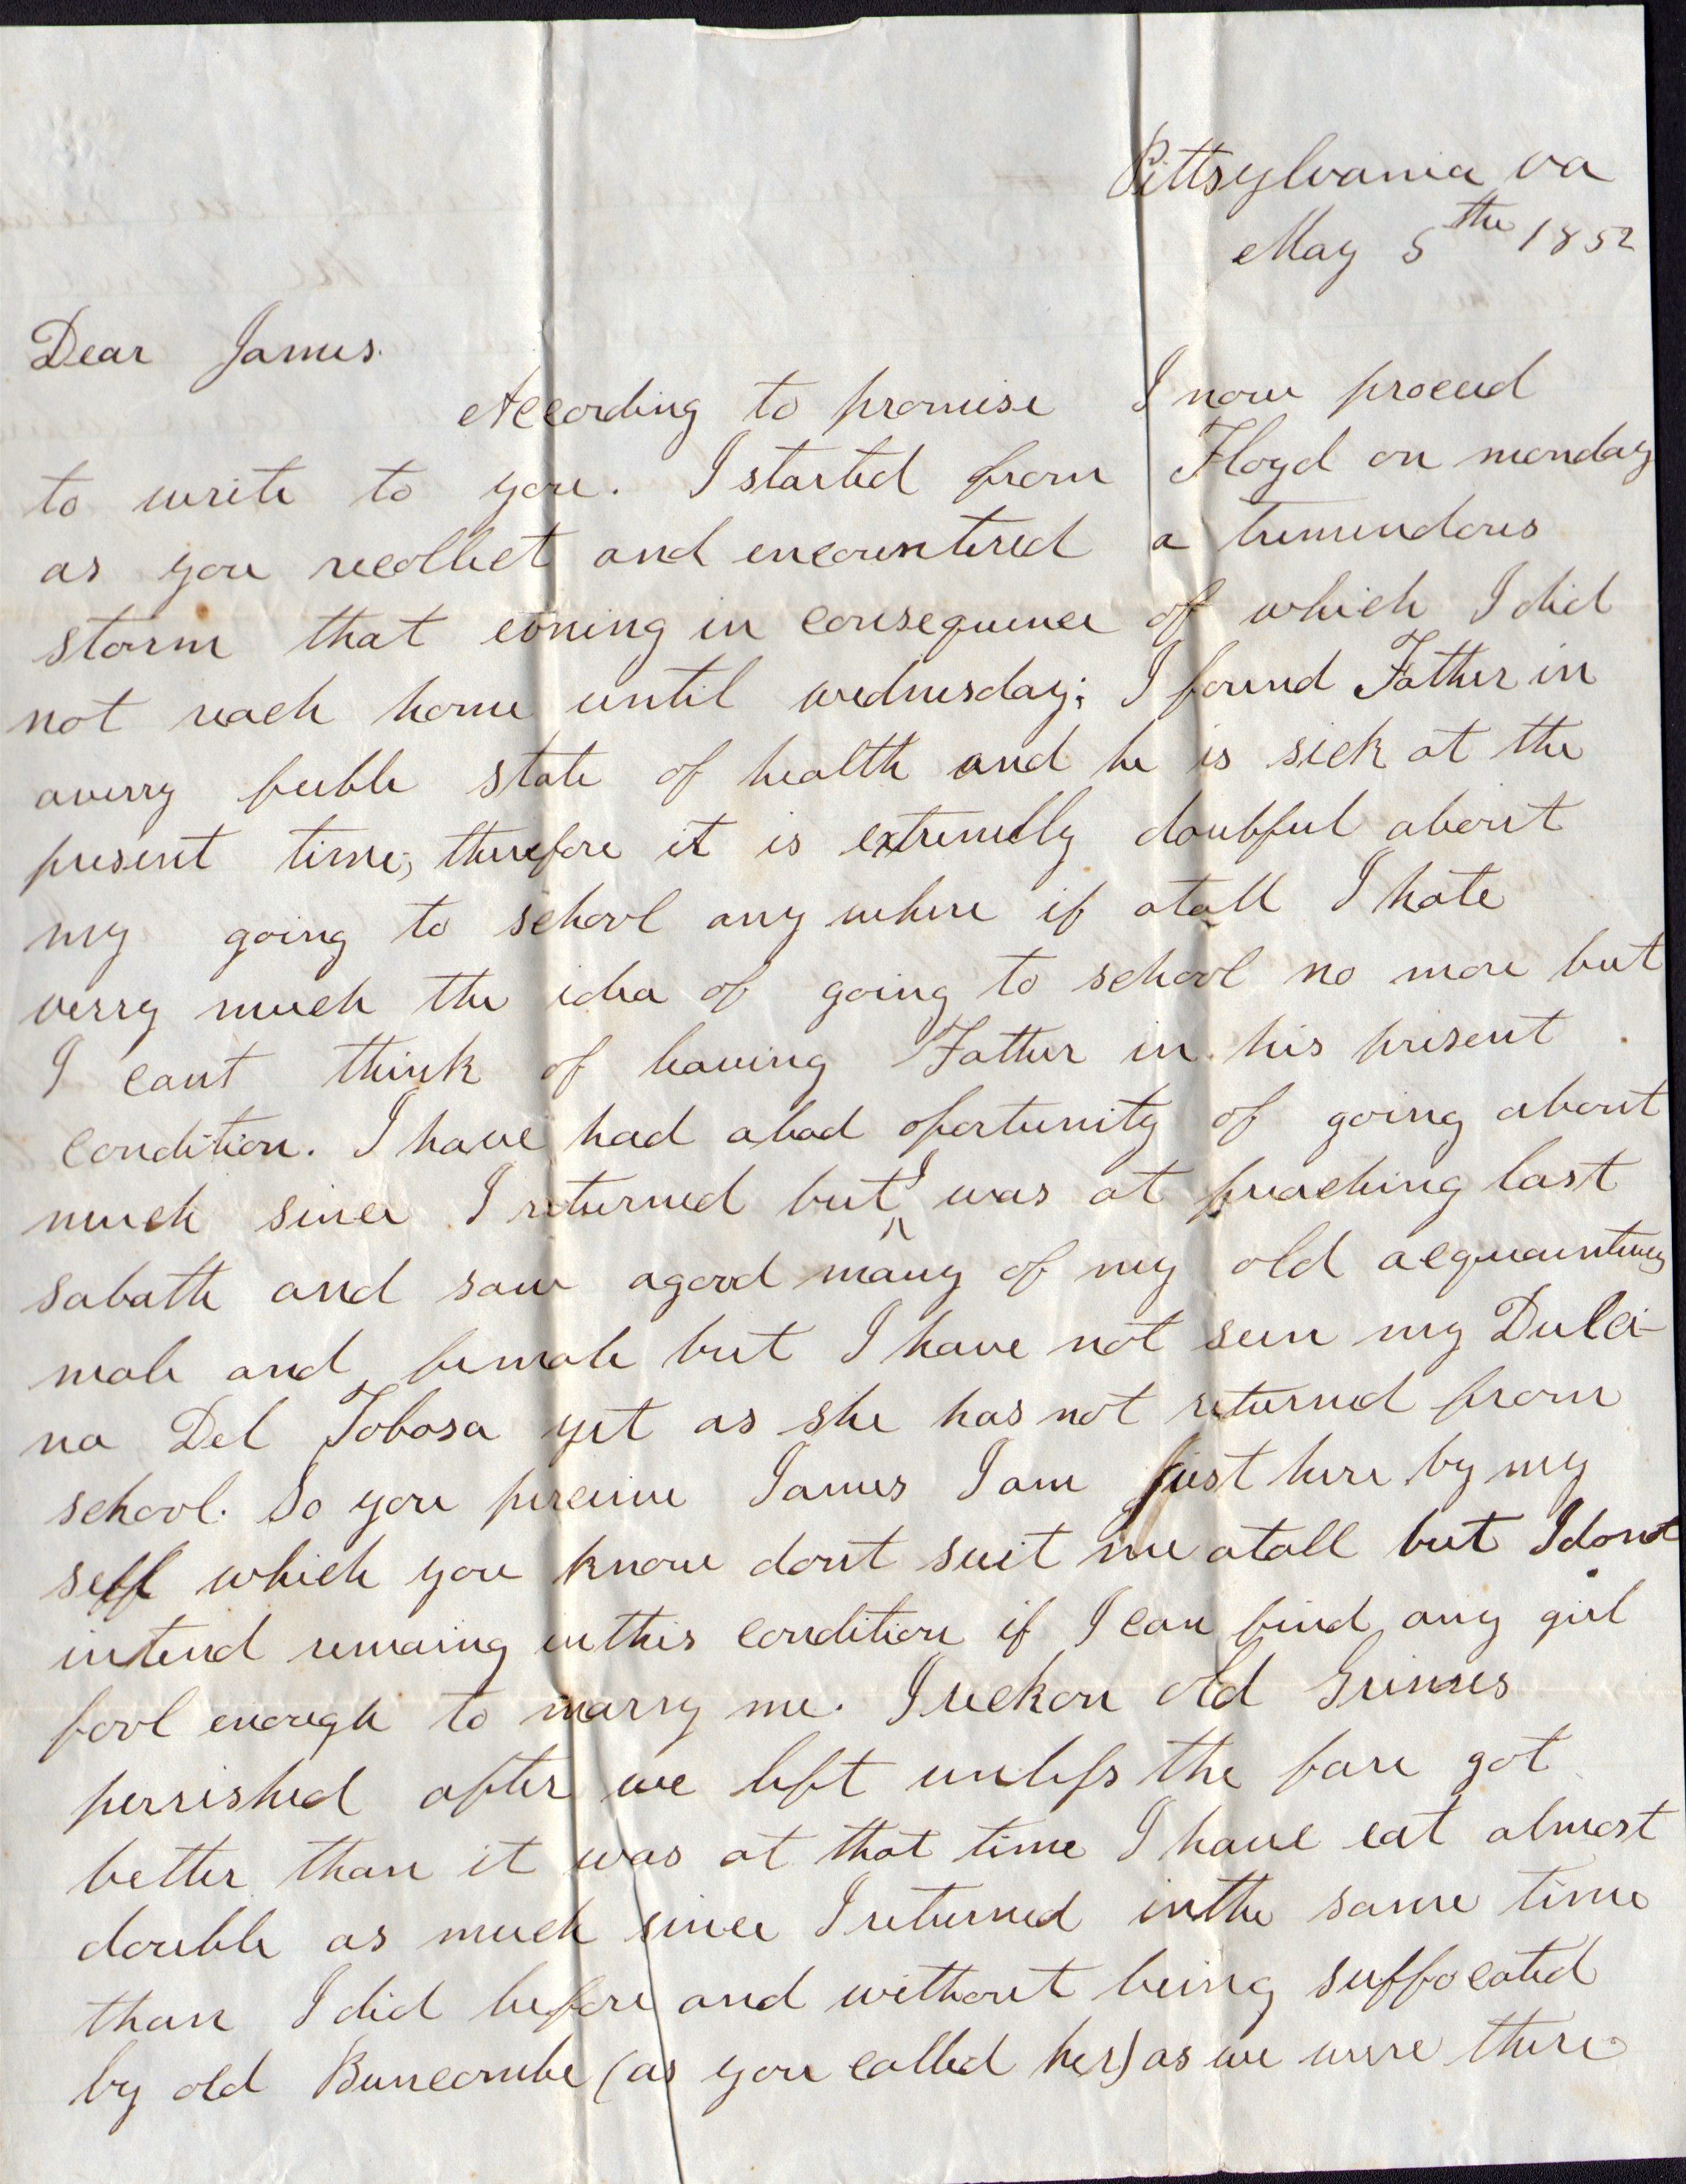 Pittsylvania va
May 5the 1852
Dear James.
According to promise I now proceed
to write to you. I started from Floyd on monday
as you recollect and encountered a tremendous
storm that evning in consequence of which I did
not reach home until wednesday; I found Father in
averry feeble state of health and he is sick at the
present time; therefore it is extremelly doubful about
my going to school any where if atall I hate
verry much the idea of going to school no more but
I cant think of leaving Father in his present
condition. I have had abad opertunity of going about
much since I returned but I was at preaching last
sabath and saw agood many of my old acquaintences
male and female but I have not seen my Dulci-
na Del Tobosa yet as she has not returned from
school. So you perceive James I am just here by my
self which you know dont suit me atall but I dont
intend remaing inthis condition if I can find any girl
fool enough to marry me. I reckon old Grimes
perrished after we left unless the fare got
better than it was at that time I have eat almost
double as much since I returned inthe same time
than I did before and without being suffocated
by old Buncombe (as you called her) as we were there